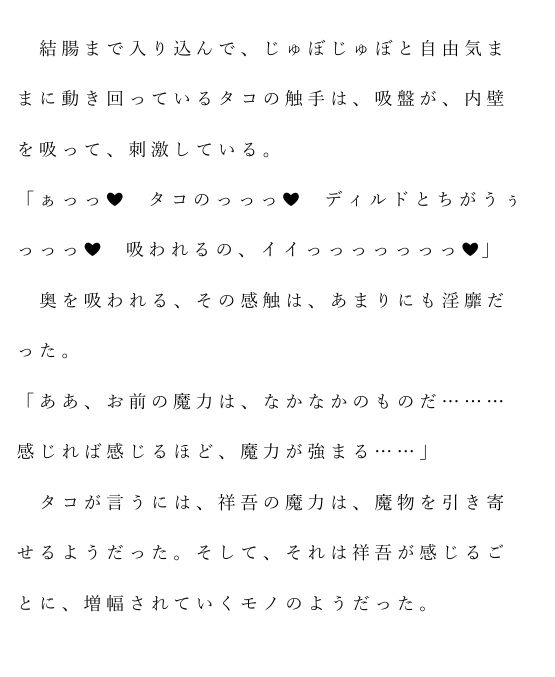 結腸まで入り込んで、じゅぼじゅぼと自由気ま
まに動き回っているタコの触手は、吸盤が、内壁
を吸って、刺激している。
「ぁっっ♥　タコのっっっ♥　ディルドとちがうぅ
っっっ♥　吸われるの、イイっっっっっっっ♥」
　奥を吸われる、その感触は、あまりにも淫靡だ
った。
「ああ、お前の魔力は、なかなかのものだ………
感じれば感じるほど、魔力が強まる……」
　タコが言うには、祥吾の魔力は、魔物を引き寄
せるようだった。そして、それは祥吾が感じるご
とに、増幅されていくモノのようだった。